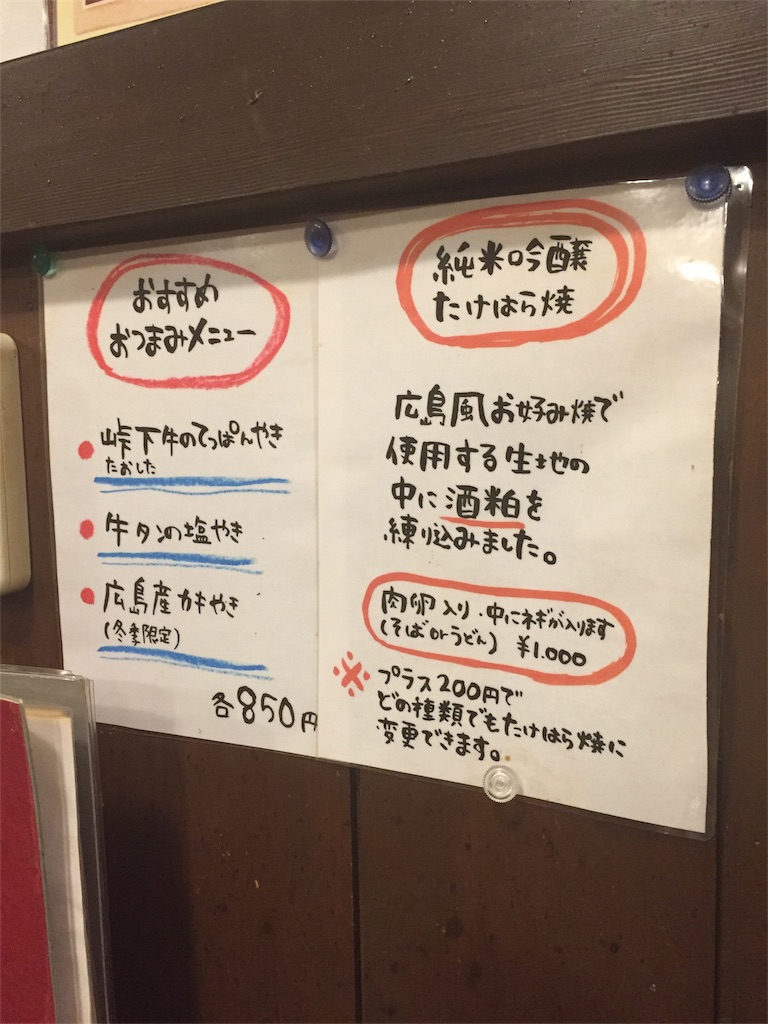 おすすめ
おつまみメニュー
峠下牛のてっぱんやき
たおした
牛タンの塩やき
広島産カキやき
(冬季限定)
各850円
純米吟醸
たけはら焼
広島風お好み焼で
使用する生地の
中に酒粕を
練り込みました。
肉卵入り・中にネギが入ります
(そばorうどん) ¥1.000
※プラス200円で
どの種類でもたけはら焼に
変更できます。